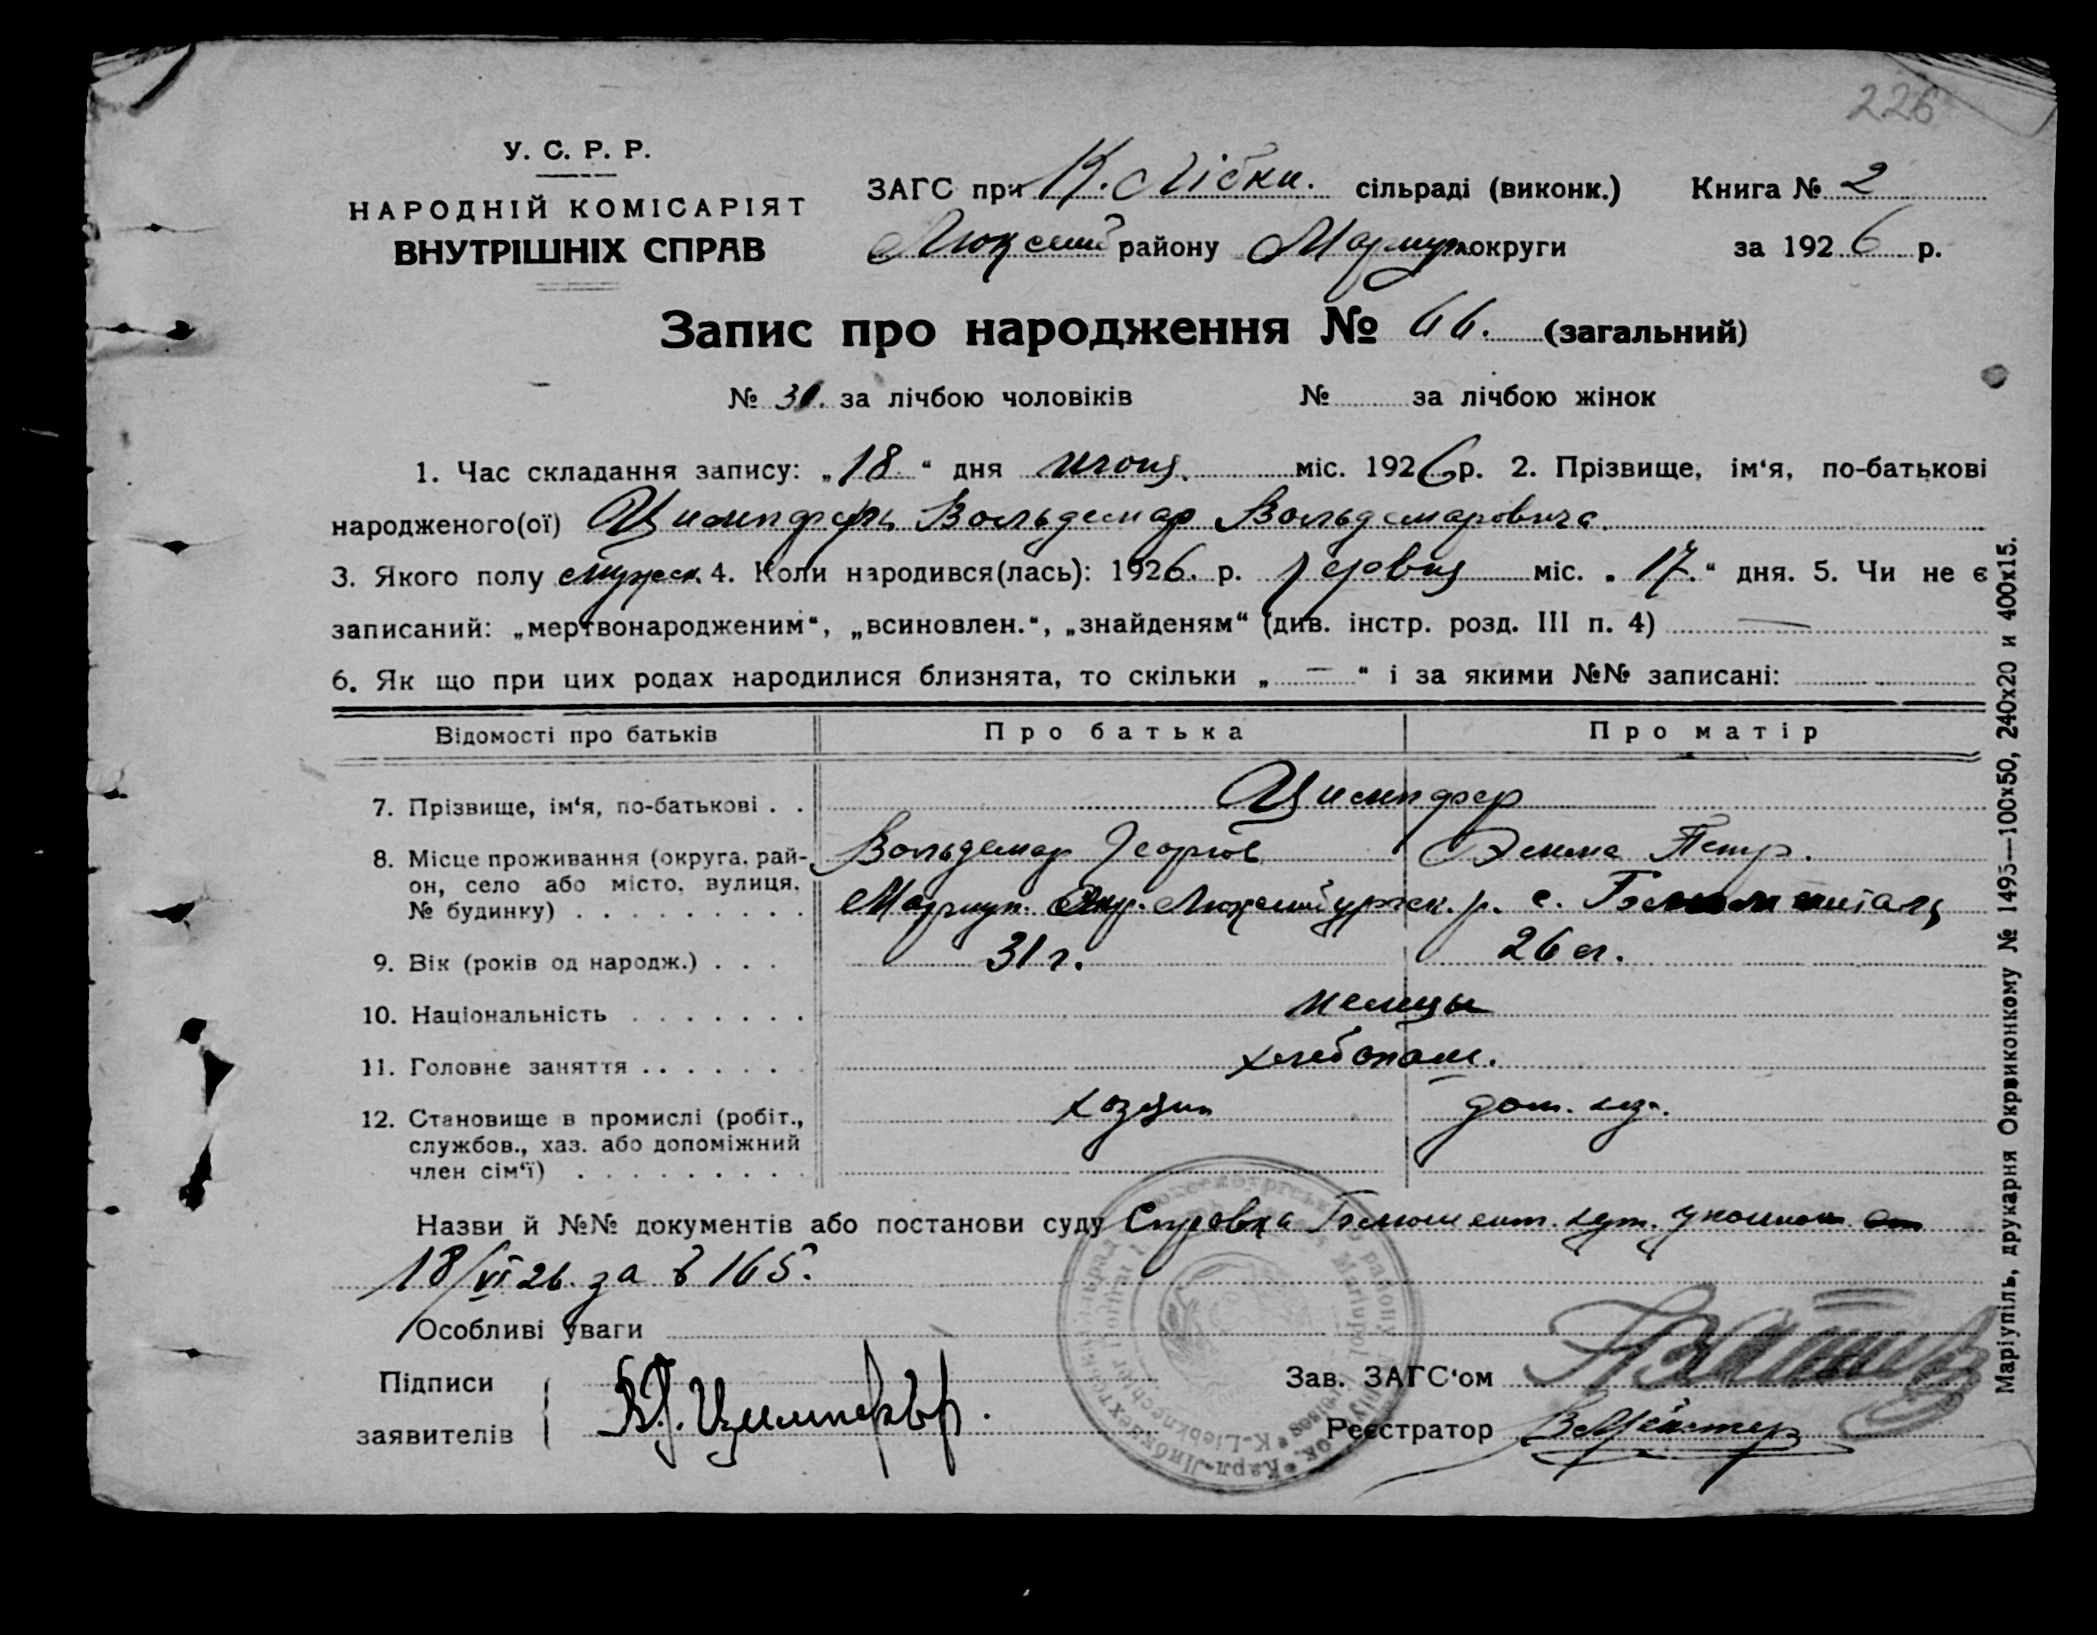 226
У. С. Р. Р.
НАРОДНІЙ КОМІСАРІЯТ
ВНУТРІШНІХ СПРАВ
ЗАГС при К. Лібкн. сільраді (виконк.) Книга № 2
Люксемб району Маріуп округи за 1926 р.
Запис про народження № 66. (загальний)
№ 31. за лічбою чоловіків № за лічбою жінок
1. Час складання запису: „18“ дня июня міс. 1926 р. 2. Прізвище, ім‘я, по-батькові
народженого(ої) Вольдемар Вольдемарович
3. Якого полу мужеск. 4. Коли народився(лась): 1926. р. міс. „17.“ дня. 5. Чи не є
записаний: „мертвонародженим“, „всиновлен.“, „знайденям“ (див. інстр. розд. III п. 4) —
6. Як що при цих родах народилися близнята, то скільки „—“ і за якими №№ записані:
Відомості про батьків Про батька Про матір
7. Прізвище, ім‘я, по-батькові . . Цимпфер
8. Місце проживання (округа, рай- Вольдемар Георгов Эмма Петр.
он, село або місто, вулиця, Мариуп. Окр. Люксембургск. р. с.
№ будинку)
9. Вік (років од народж.) . . . 31 г. 26 л.
10. Національність немцы
11. Головне заняття хлебопаш.
12. Становище в промислі (робіт., хозяин дом. хоз.
службов., хаз. або допоміжний
член сім‘ї)
Назви й №№ документів або постанови суду Справка
18/VI 26. за № 165.
Особливі уваги
Підписи
заявителів
Зав. ЗАГС‘ом
Реєстратор
Маріупіль, друкарня Окрвиконкому № 1495—100x50, 240x20 и 400x15.